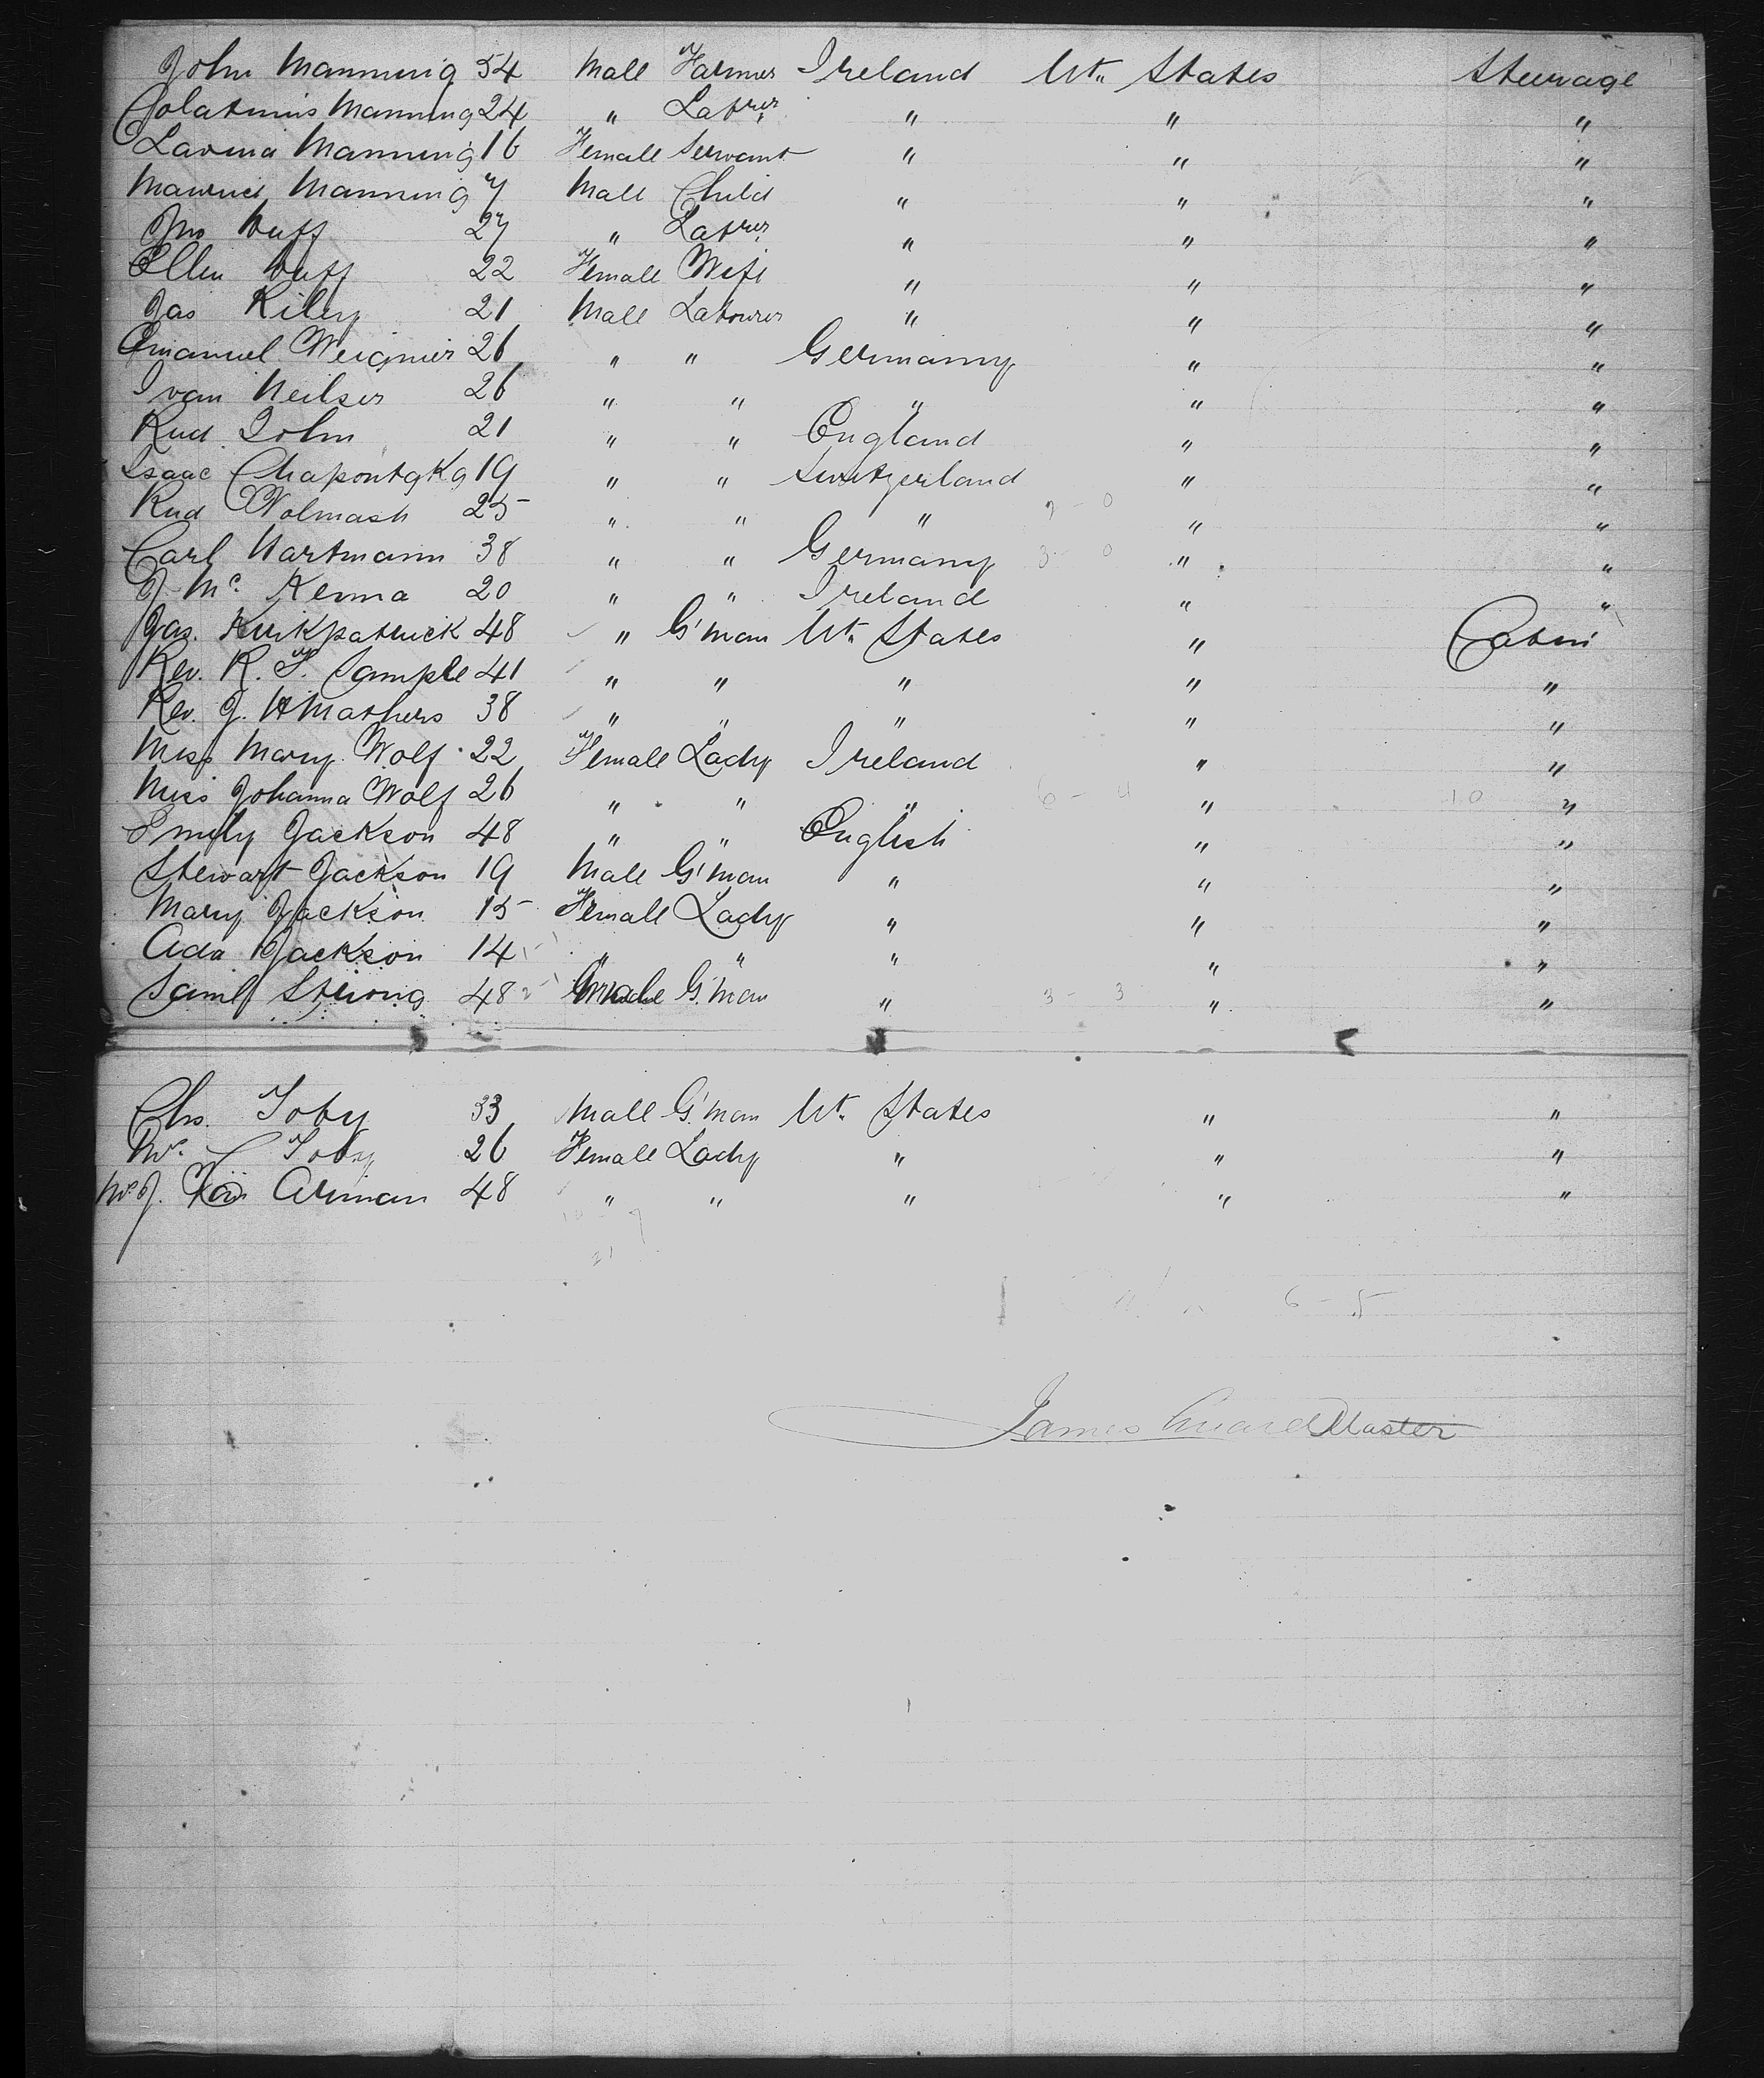 John Manning 54 Male Farmer Ireland Ut. States Steerage
Manning 24 " Labrer " " "
Lavina Manning 16 Female Servant " " "
Maurice Manning 7 Male Child " " "
Jno Duff 27 " Labrer " " "
Ellen Duff 22 Female Wife " " "
Jas Riley 21 Male Labourer " " "
Emanuel Weignier 26 " " Germany " "
Ivan Neilser 26 " " " " "
Rud John 21 " " England " "
Isaac 19 " " Switzerland " "
Rud Wolmash 25 " " " " "
Carl Hartmann 38 " " Germany " "
J. Mc. Kenna 20 " " Ireland " "
Jas. Kirkpatrick 48 " G'man Ut. States " Cabin
Rev. R. F. Sample 41 " " " " "
Rev. J. H Mathers 38 " " " " "
Miss Mary Wolf 22 Female Lady Ireland " "
Miss Johanna Wolf 26 " " " 6 - 4 " 10 "
Emily Jackson 48 " " English " "
Stewart Jackson 19 Male G'man " " "
Mary Jackson 15 Female Lady " " "
Ada Jackson 14 " " " " "
Saml Strong 48 Male G'man " 3 - 3 " "
Chs. Toby 33 Male G'man Ut. States " "
Toby 26 Female Lady " " "
J. Arman 48 " " " " "
21
6 - 5
James Master